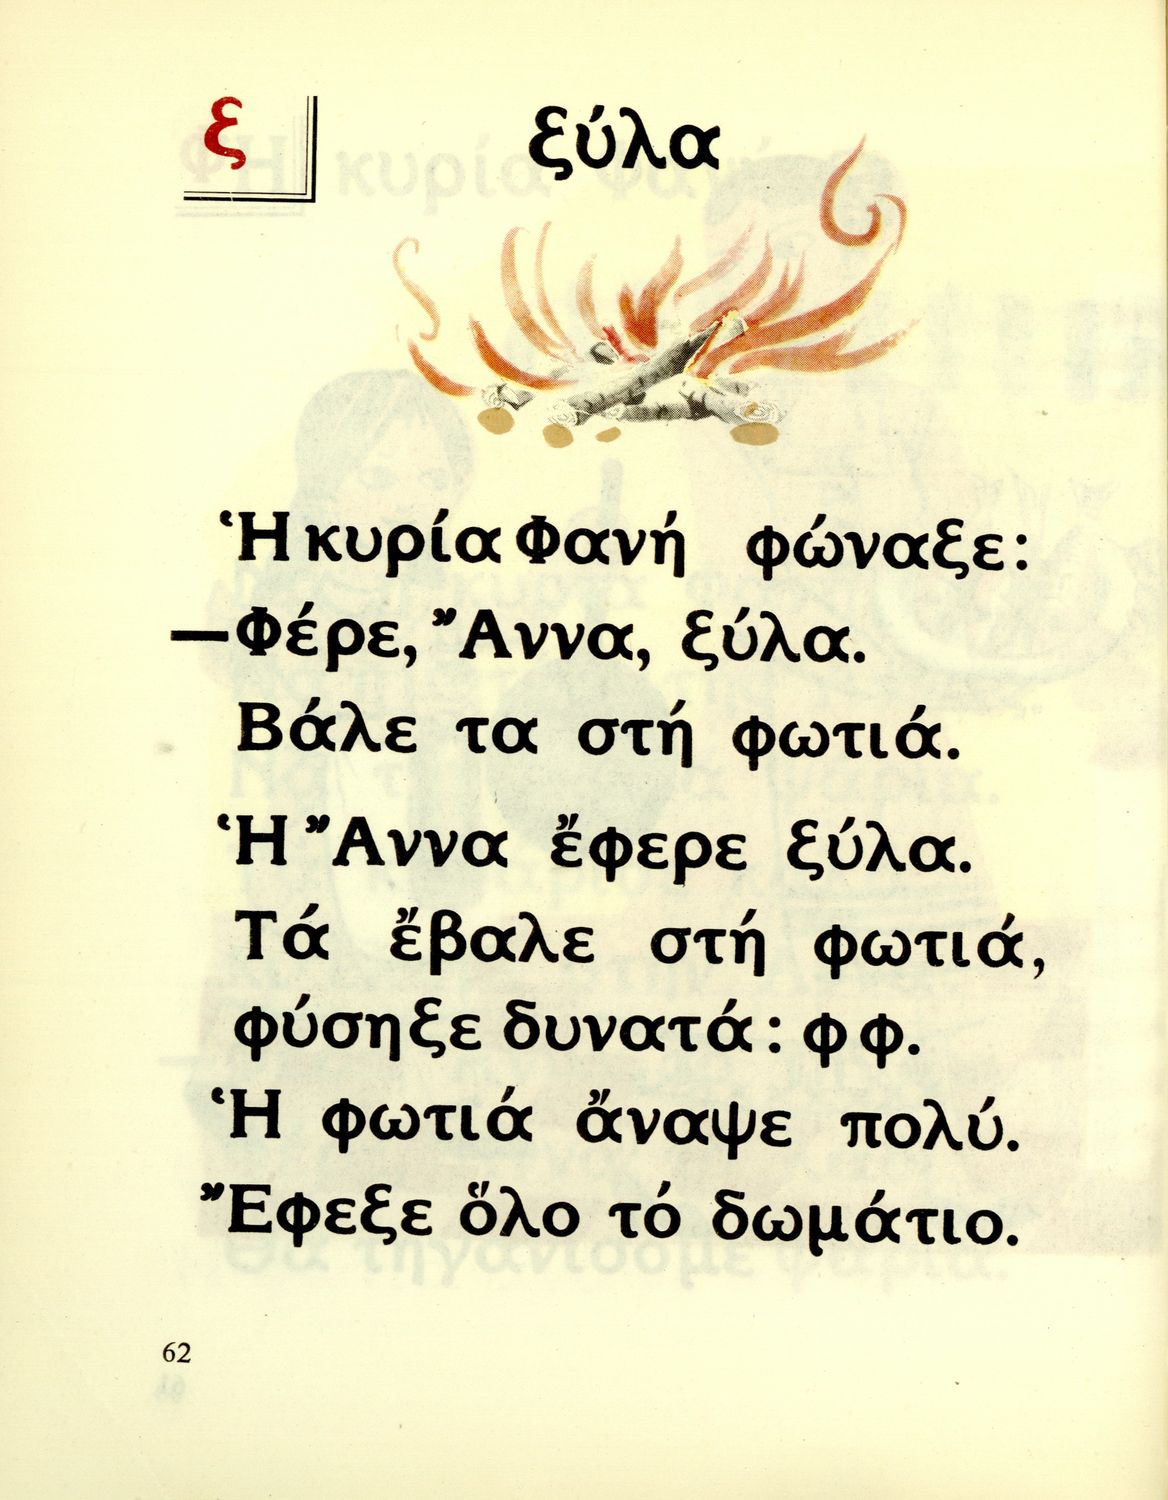 ξ
ξύλα
Ἡ κυρία Φανή φώναξε:
—Φέρε, Ἄννα, ξύλα.
Βάλε τα στή φωτιά.
Ἡ Ἄννα ἔφερε ξύλα.
Τά ἔβαλε στή φωτιά,
φύσηξε δυνατά: φ φ.
Ἡ φωτιά ἄναψε πολύ.
Ἔφεξε ὅλο τό δωμάτιο.
62